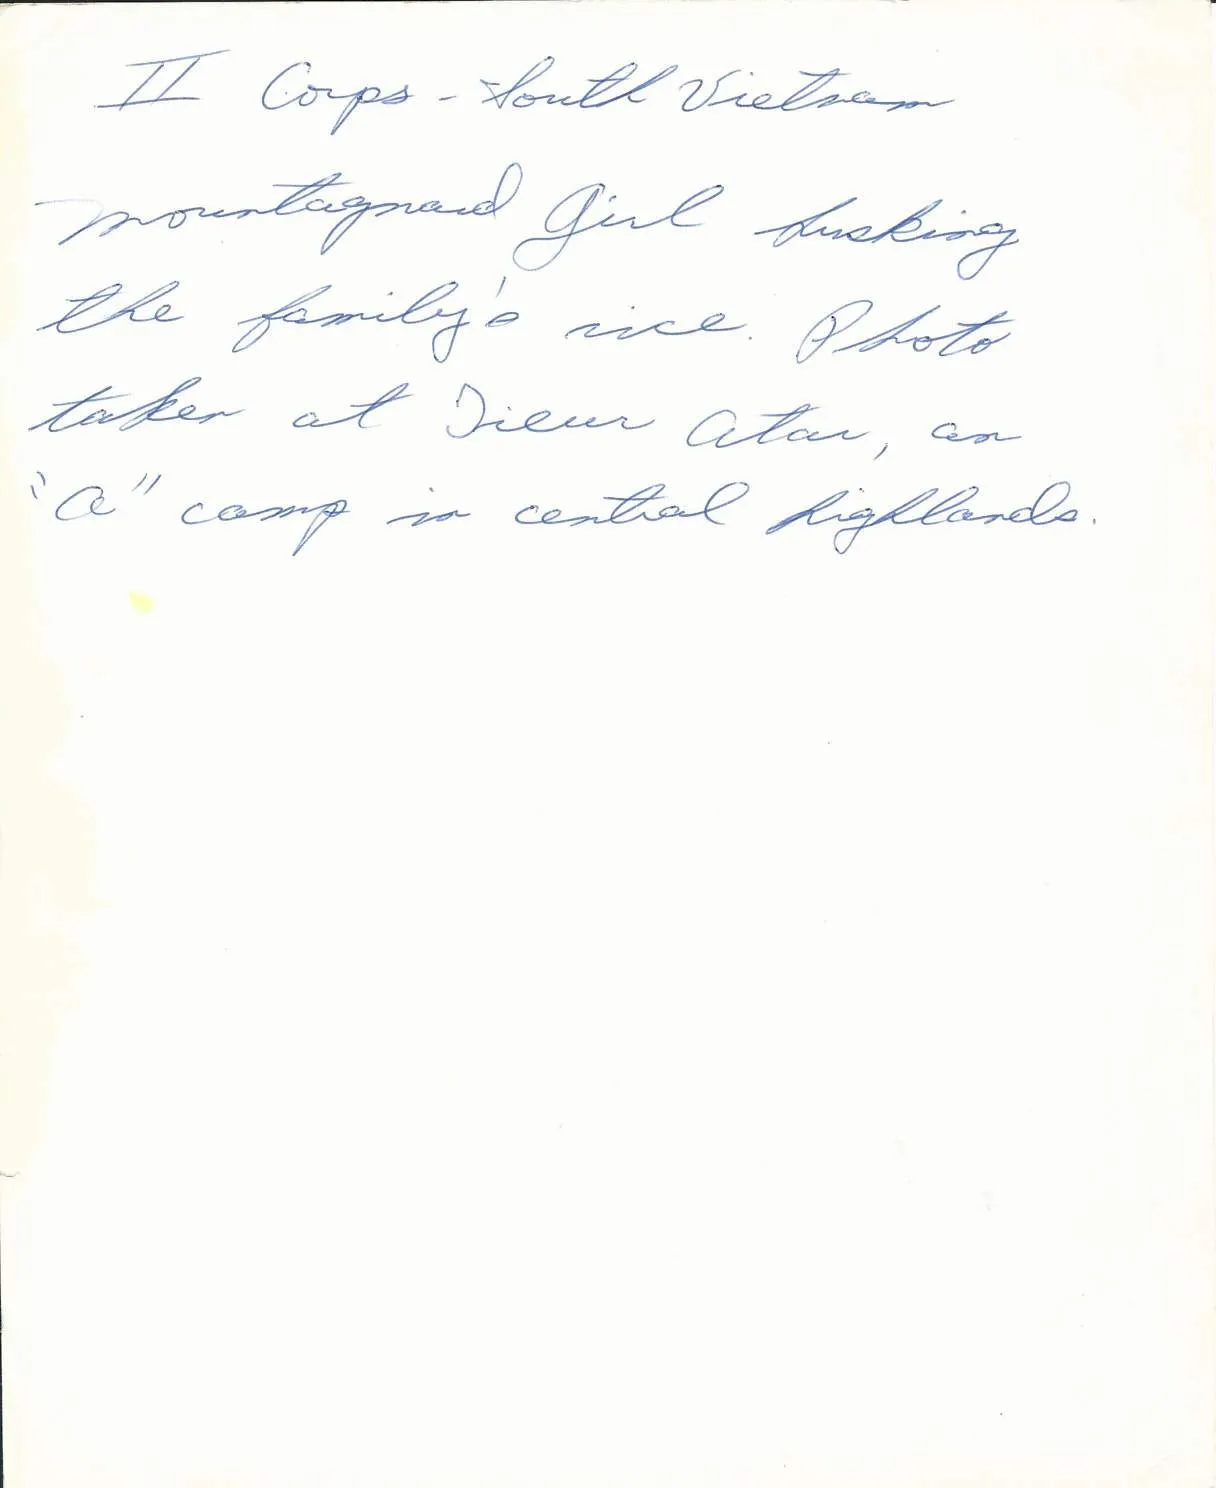 II Corps - South Vietnam
Mountagnard Girl husking
the family's rice. Photo
taken at Tieur Atar, an
"A" camp in central highlands.